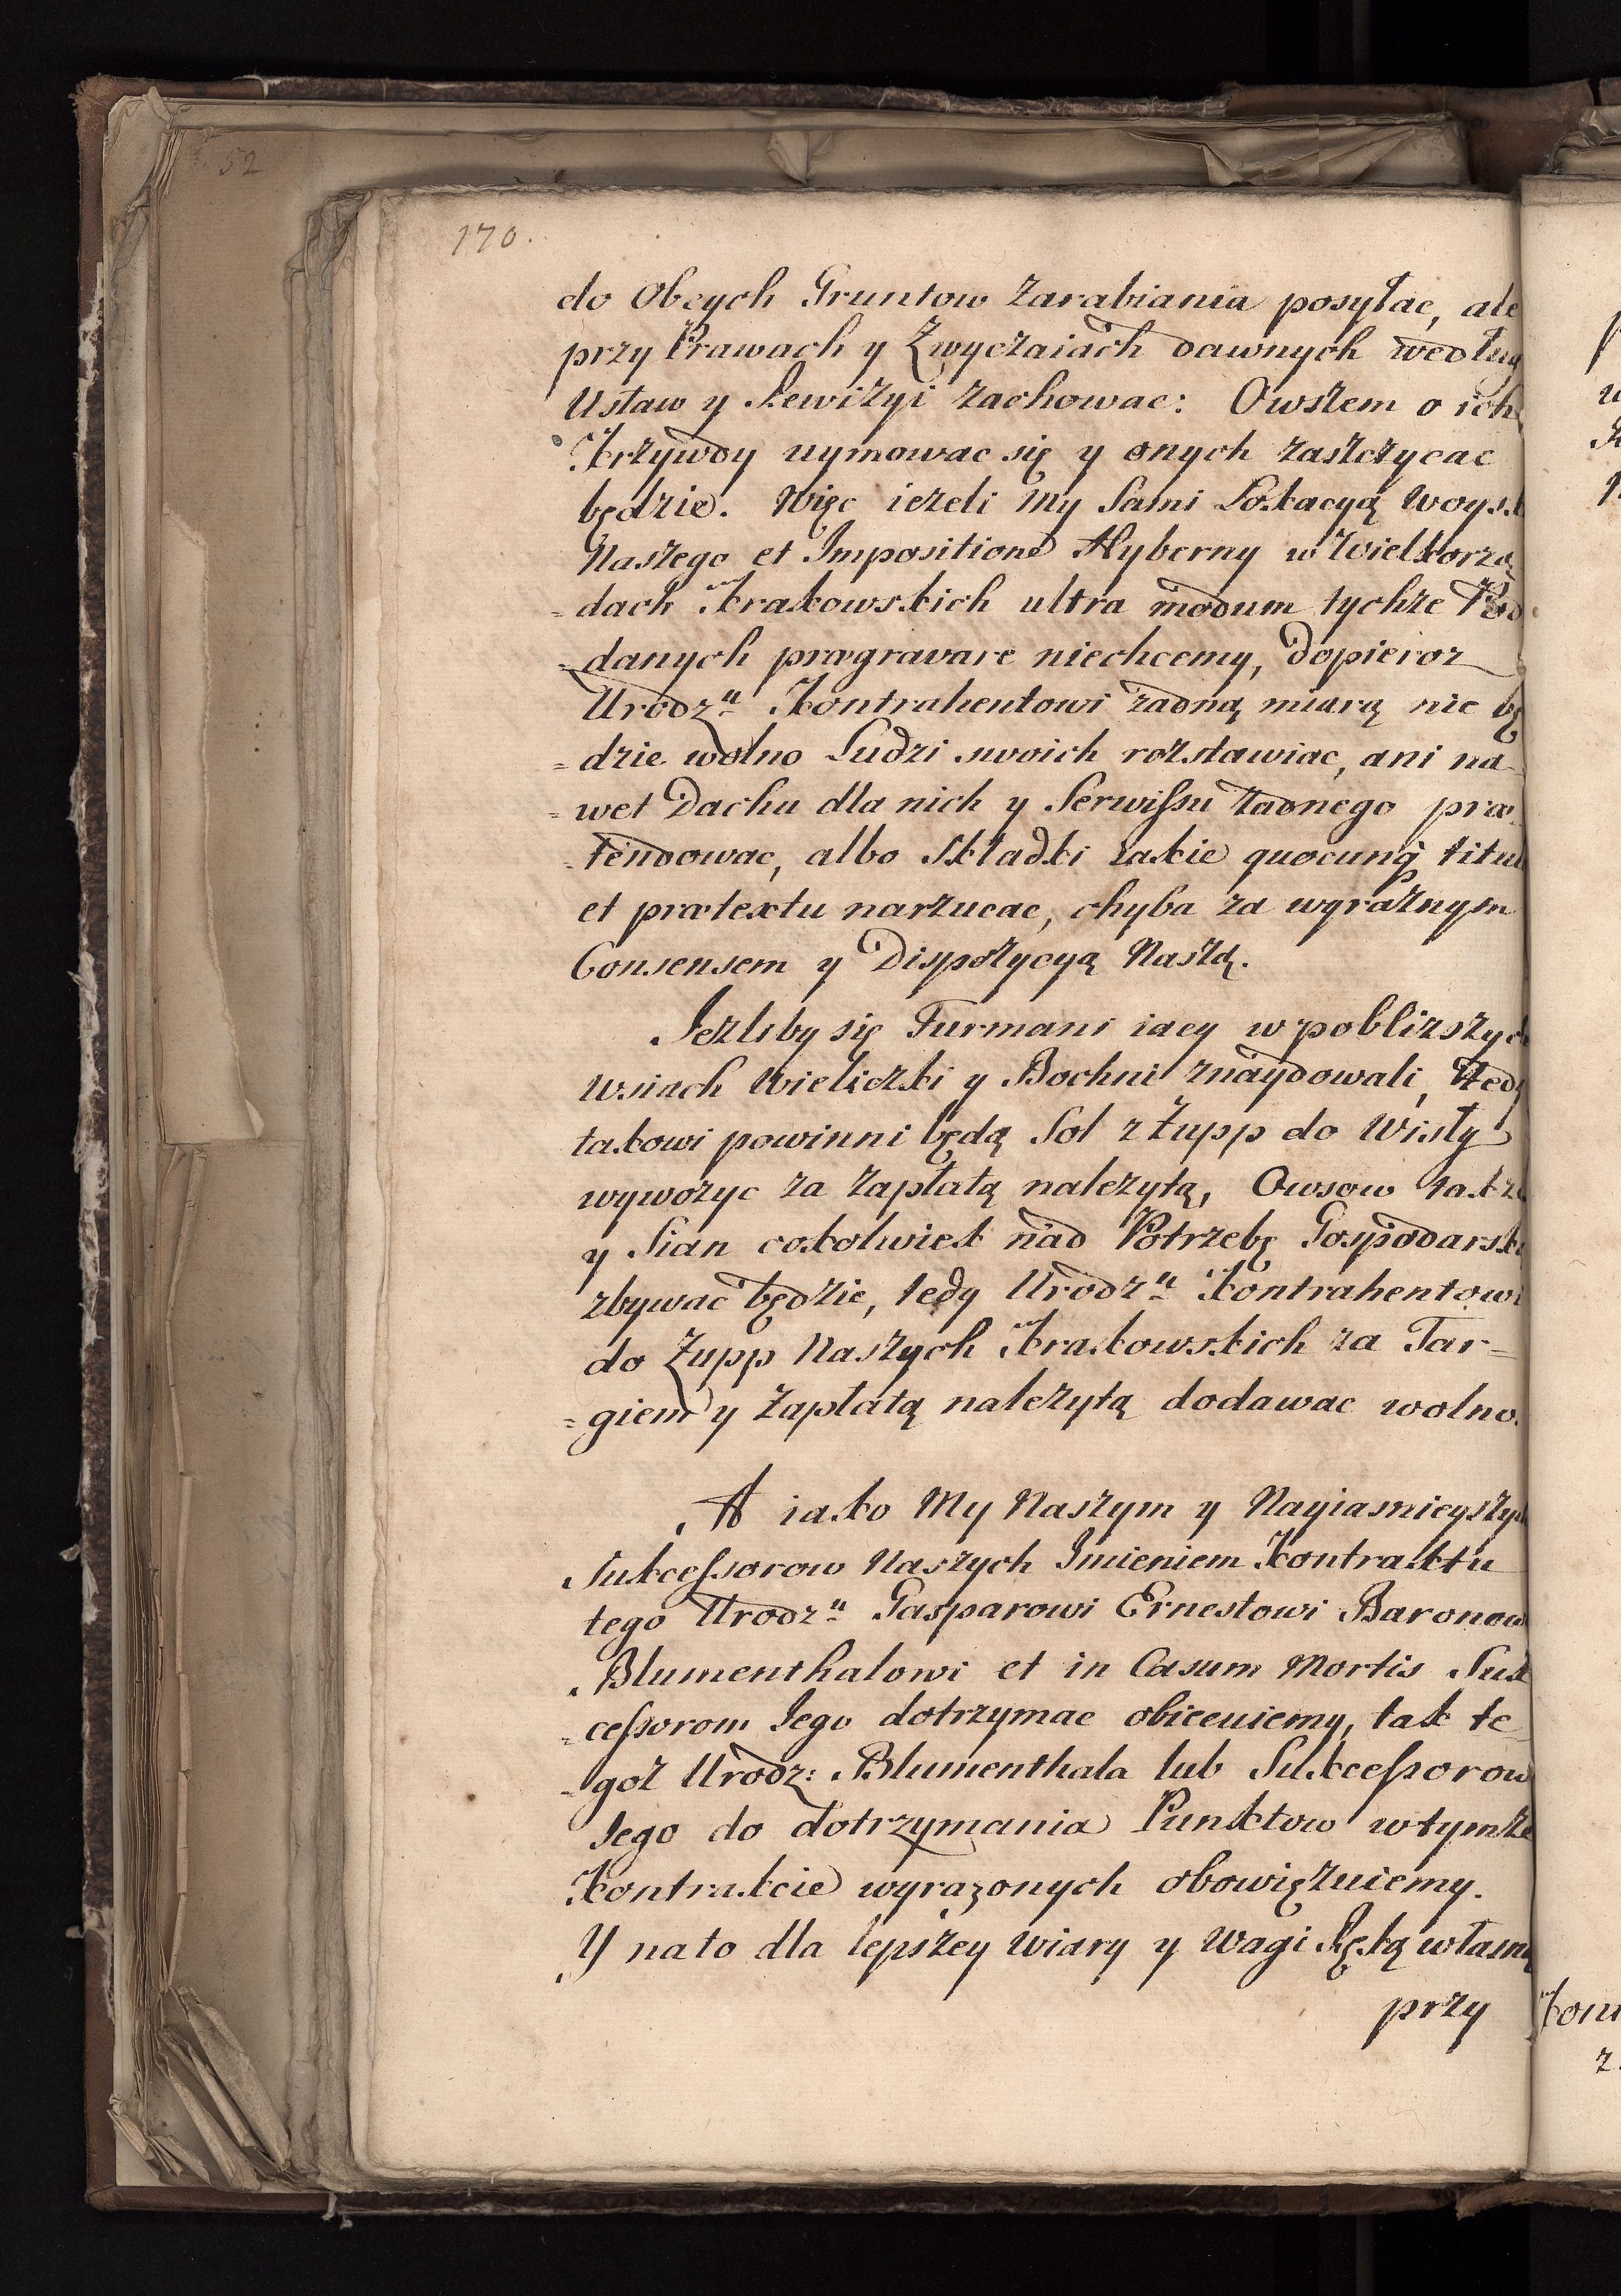 52
170.
do Obcych Gruntow zarabiania posyłac, ale
przy Prawach y Zwyczaiach dawnych według
Ustaw y Rewizyi zachowac: Owszem o ich
Krzywdy uymowac się y onych zaszczycac
będzie. Więc ieżeli My Sami Lokacyą Woysk
Naszego et Impositione Hyberny w Wielkorzą
=dach Krakowskich ultra modum tychże Pod
=danych prægravare niechcemy, Dopieroz
Urodz.u Kontrahentowi żadną miarą nie bę
=dzie wolno Ludzi swoich rozstawiac, ani na
=wet Dachu dla nich y Serwissu żadnego præ=
=tendowac, albo Składki iakie quocunq titul
et prætextu narzucac, chyba za wyraznym
Consensem y Dispozycyą Naszą.
Jeżliby się Furmani iacy w pobliższych
Wsiach Wieliczki y Bochni znaydowali, Tedy
takowi powinni będą Sol z Żupp do Wisły
wywozyc za zapłatą należytą, Owsow także
y Sian cokolwiek nad Potrzebę Gospodarską
zbywac będzie, tedy Urodz.u Kontrahentowi
do Żupp Naszych Krakowskich za Tar=
=giem y Zapłatą należytą dodawac wolno.
A iako My Naszym y Nayiasnieyszych
Sukcessorow Naszych Imieniem Kontraktu
tego Urodz.u Gasparowi Ernestowi Baronowi
Blumenthalowi et in Casum Mortis Suk
=cessorom Iego dotrzymac obiecuiemy, tak te
=goż Urodz: Blumenthala lub Sukcessorow
Iego do dotrzymania Punktow w tymże
Kontrakcie wyrażonych obowięzuiemy.
Y na to dla lepszey Wiary y Wagi Ręką własną
przy